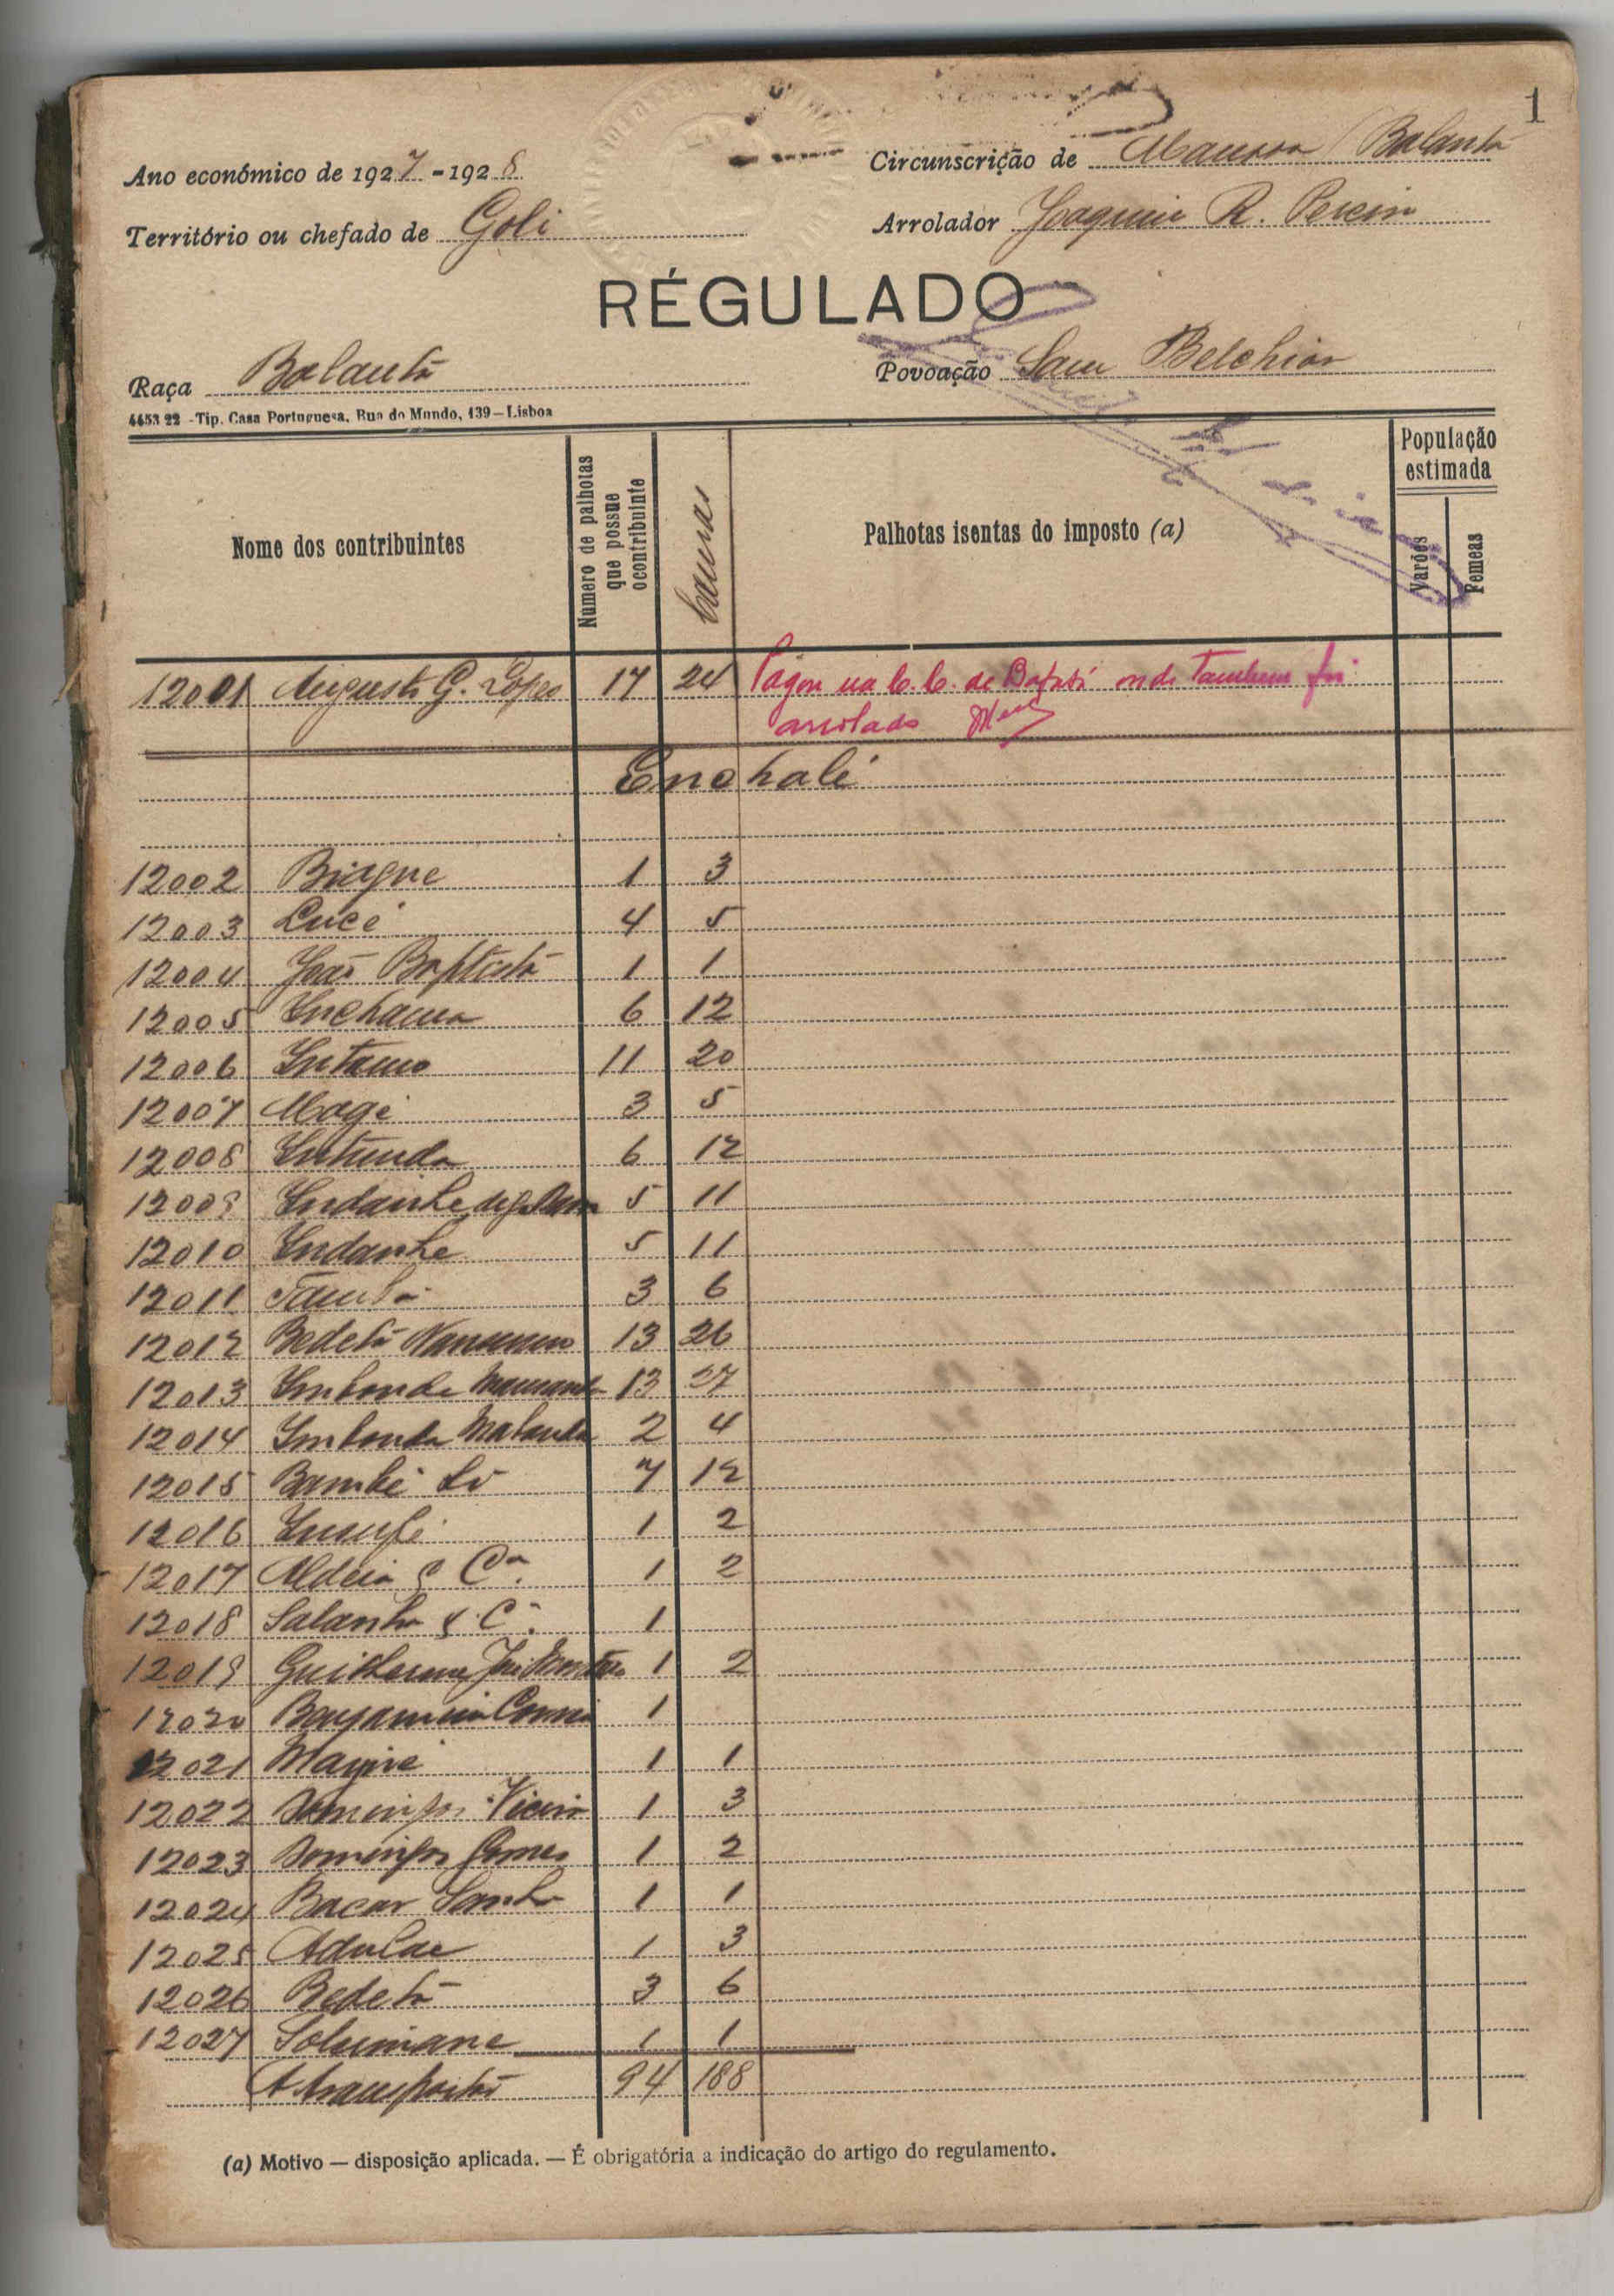 1
Ano económico de 1927-1928
Circunscrição de Mansoa Balanta
Território ou chefado de Goli
Arrolador Joaquim R. Pereira
RÉGULADO
Raça Balanta
Povoação Sam Belchior
4453 22 - Tip. Casa Portuguesa, Rua do Mundo, 139 — Lisboa
Nome dos contribuintes
Numero de palhotas que possue o contribuinte
camas
Palhotas isentas do imposto (a)
População estimada
Varões
Femeas
12001 Augusto G. Lopes 17 24 Pagou na C. C. de Bafatá onde tambem foi
arrolado
Enchalé
12002 Biagne 1 3
12003 Lucé 4 5
12004 João Baptista 1 1
12005 Enchama 6 12
12006 Intamo 11 20
12007 Magi 3 5
12008 Intunda 6 12
12009 Indanhe 5 11
12010 Indanhe 5 11
12011 3 6
12012 Bedetá 13 26
12013 Imbonde 13 27
12014 Imbonde 2 4
12015 Bambé 7 12
12016 1 2
12017 Aldeia & Cª 1 2
12018 Salanha & Cª 1
12019 Guilherme José 1 2
12020 Benjamim Correia 1
12021 1 1
12022 Domingos Vieira 1 3
12023 Domingos Gomes 1 2
12024 Bacar Sanha 1 1
12025 Adulae 1 3
12026 Bedetá 3 6
12027 Solumane 1 1
A transportar 94 188
(a) Motivo — disposição aplicada. — É obrigatória a indicação do artigo do regulamento.